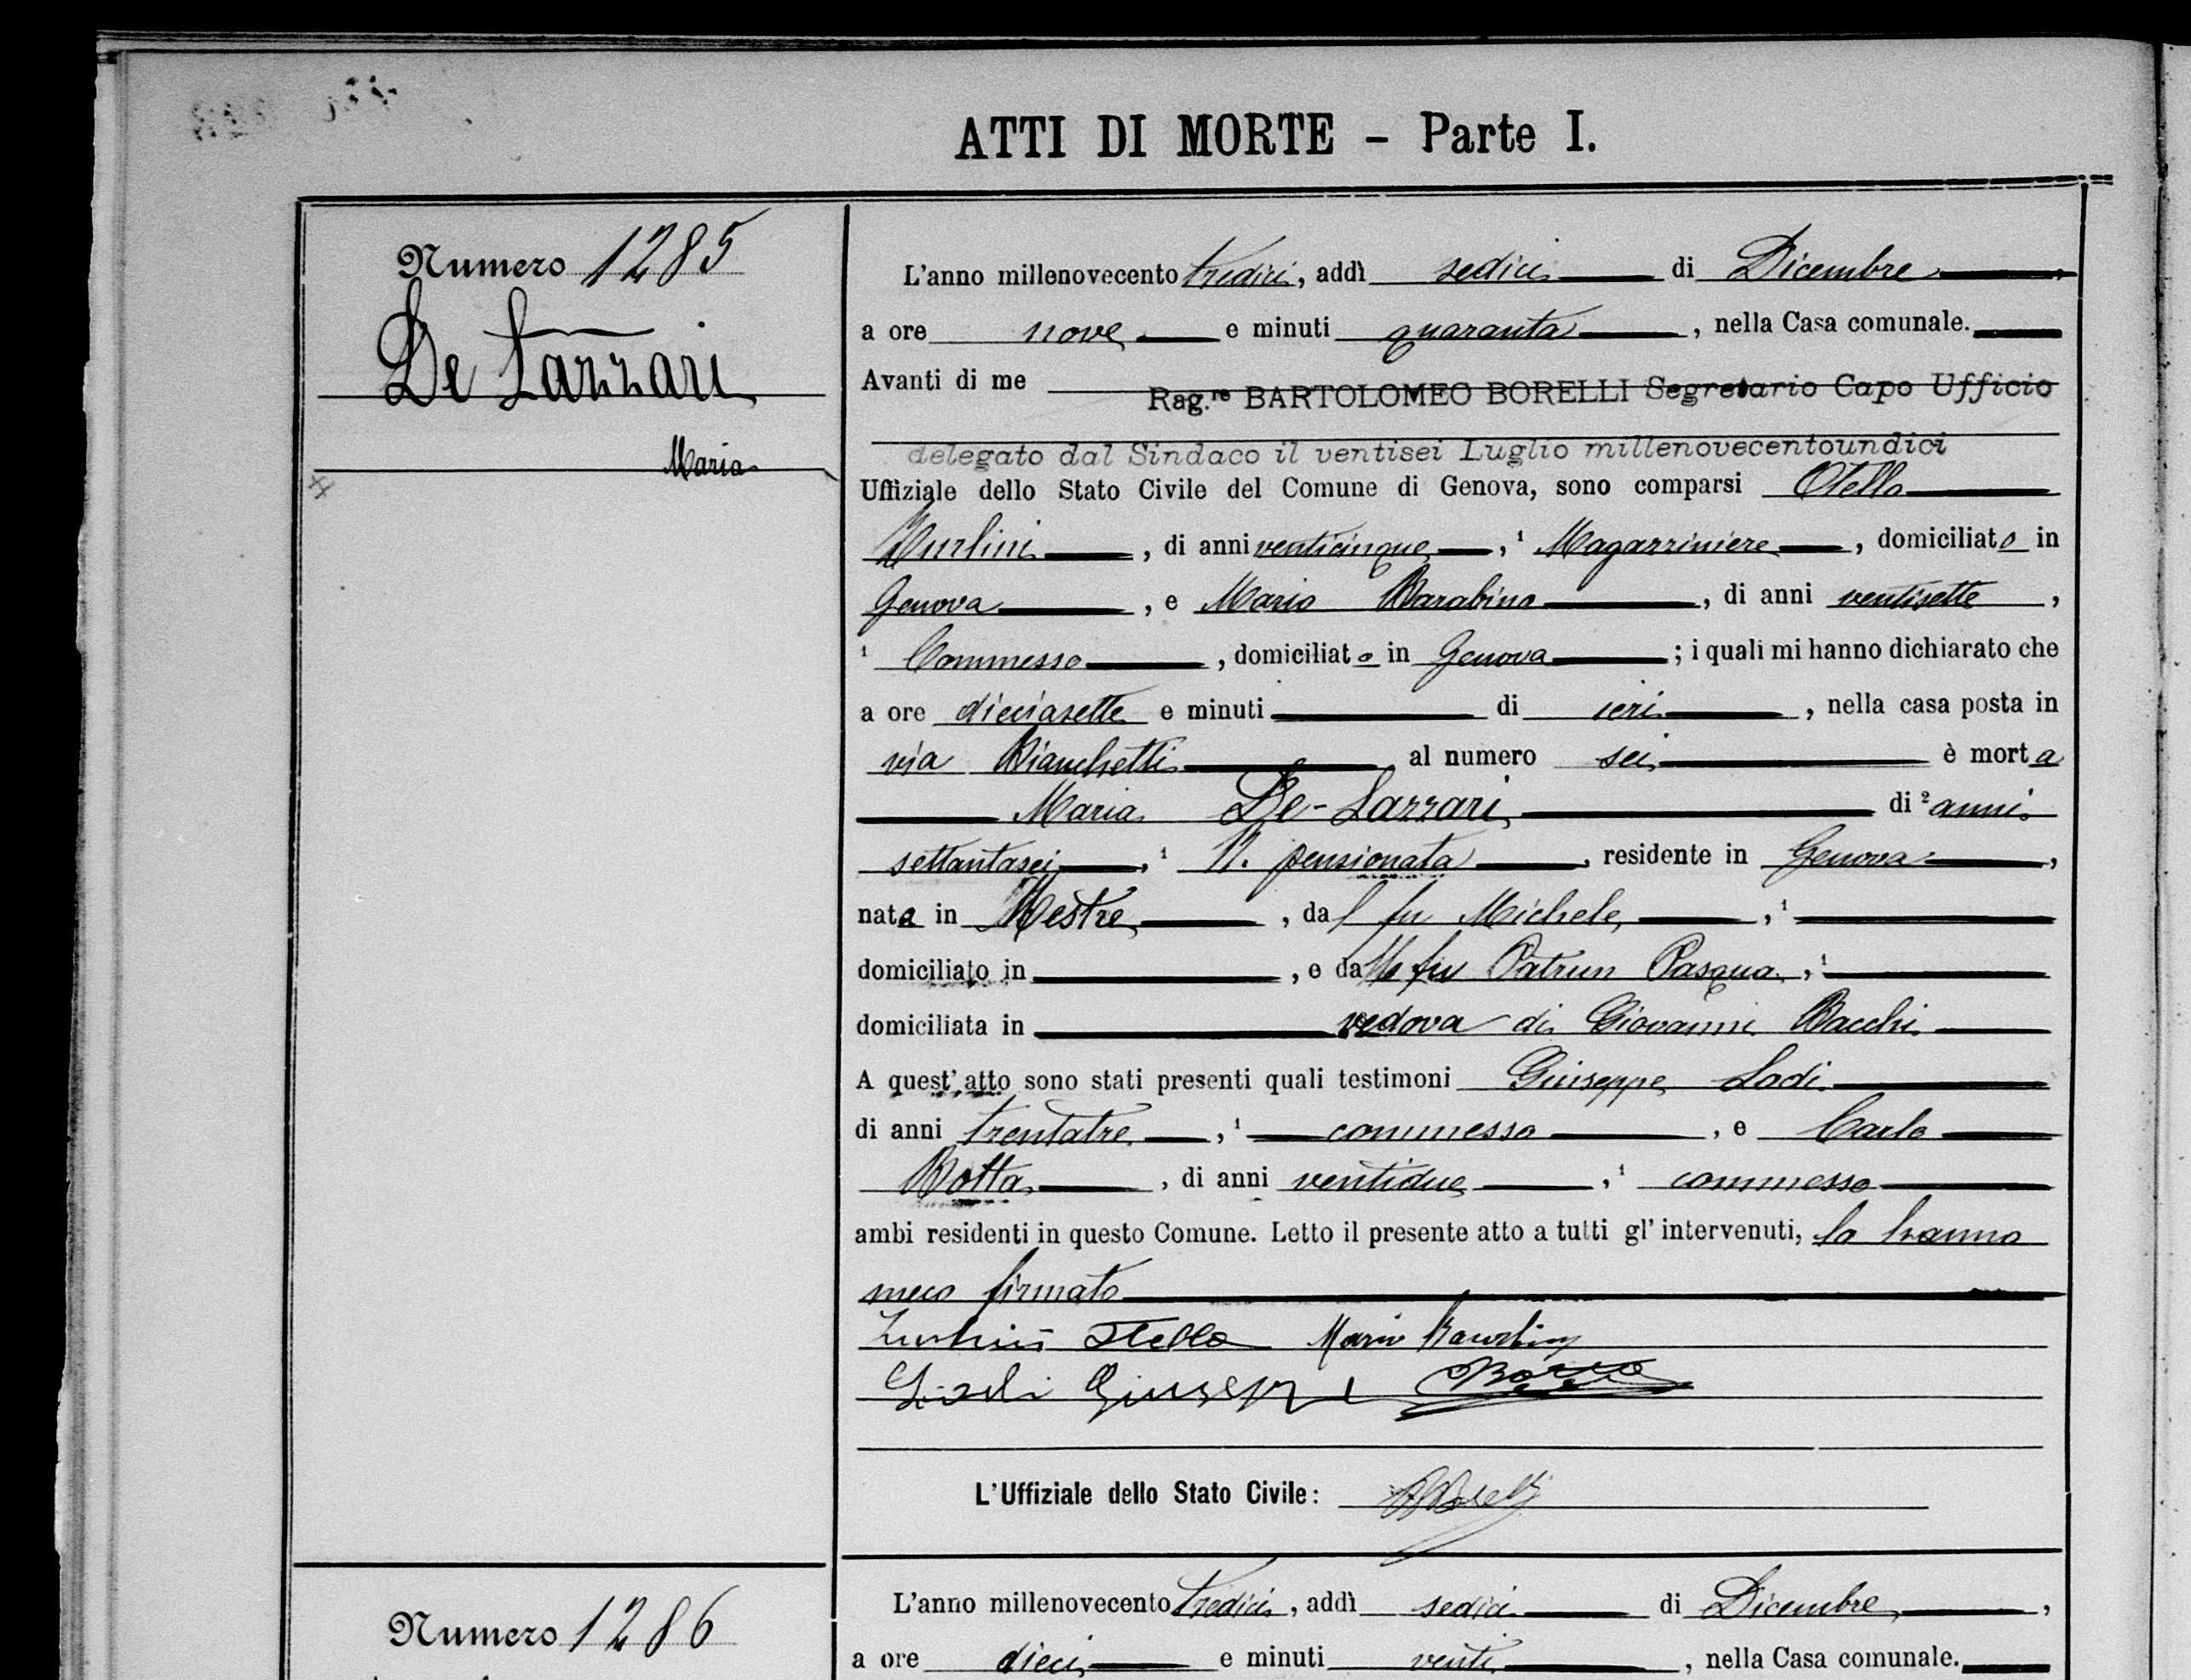 ATTI DI MORTE - Parte I.
Numero 1285
De Lazzari
Maria
L'anno millenovecento tredici, addì sedici di Dicembre,
a ore nove e minuti quaranta, nella Casa comunale.
Avanti di me Rag.re BARTOLOMEO BORELLI Segretario Capo Ufficio
delegato dal Sindaco il ventisei Luglio millenovecentoundici
Uffiziale dello Stato Civile del Comune di Genova, sono comparsi Otello
, di anni venticinque, 1 Magazziniere, domiciliato in
Genova, e Mario Barabino, di anni ventisette,
1 Commesso, domiciliato in Genova; i quali mi hanno dichiarato che
a ore dieciasette e minuti di ieri, nella casa posta in
via Bianchetti al numero sei è morta
Maria De-Lazzari di 2 anni
settantasei, 1 N. pensionata, residente in Genova,
nata in Mestre, dal fu Michele, 1
domiciliato in , e dalla fu Patrun Pasqua, 1
domiciliata in vedova di Giovanni Bacchi
A quest'atto sono stati presenti quali testimoni Giuseppe
di anni trentatre, 1 commesso, e Carlo
Botta, di anni ventidue, 1 commesso
ambi residenti in questo Comune. Letto il presente atto a tutti gl'intervenuti, lo hanno
meco firmato
Otello Mario
Giuseppe
L'Uffiziale dello Stato Civile:
Numero 1286
L'anno millenovecento tredici, addì sedici di Dicembre,
a ore dieci e minuti venti, nella Casa comunale.